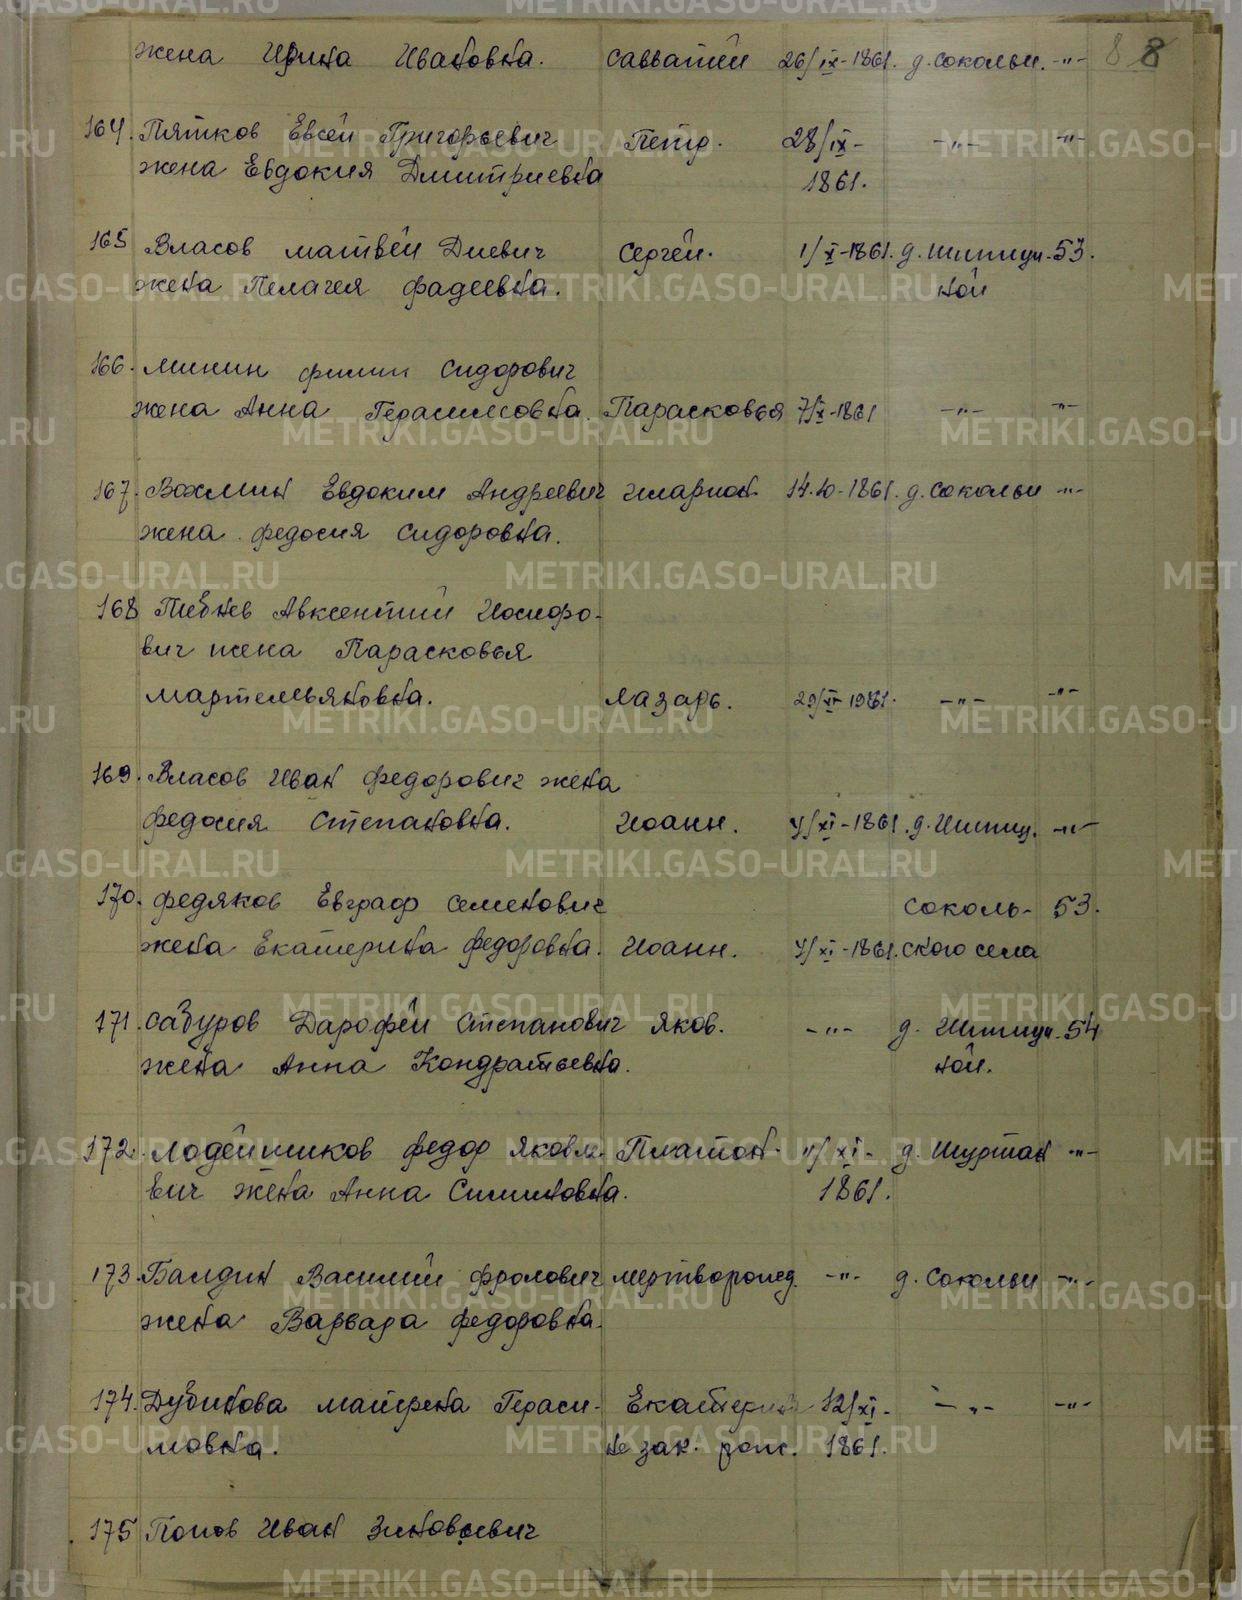 жена Ирина Ивановна. Савватий 26/IX-1861. д. Сокольи. -"- 8 8
164. Пятков Евсей Григорьевич Петр. 28/IX- -"- -"-
жена Евдокия Дмитриевна 1861.
165 Власов Матвей Диевич Сергей. 1/X-1861. д. Шипици- 53.
жена Пелагея Фадеевна. ной
166. Минин Филип Сидорович
жена Анна Герасимовна. Парасковья 7/X-1861 -"- -"-
167. Вохмин Евдоким Андреевич Иларион. 14.10-1861. д. Сокольи -"-
жена Федосия Сидоровна.
168 Авксентий Иосифо-
вич жена Парасковья
Мартемьяновна. Лазарь. 29/X-1961. -"- -"-
169. Власов Иван Федорович жена
Федосия Степановна. Иоанн. 4/XI-1861. д. Шипиц. -"-
170. Федяков Евграф Семенович Соколь- 53.
жена Екатерина Федоровна. Иоанн. 4/XI-1861. ского села
171. Сабуров Дарофей Степанович Яков. -"- д. Шипици- 54
жена Анна Кондратьевна. ной.
172. Лодейщиков Федор Яковле- Платон. 11/XI- д. Шуртан -"-
вич жена Анна 1861.
173. Балдин Василий Фролович мертворожд. -"- д. Сокольи -"-
жена Варвара Федоровна.
174. Дубинова Матрена Гераси- Екатерина 12/XI- -"- -"-
мовна. незак. рож. 1861.
175 Попов Иван Зиновьевич
METRIKI.GASO-URAL.RU